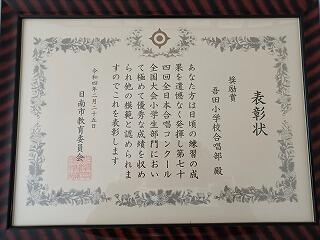 表彰状
奨励賞
吾田小学校合唱部 殿
あなた方は日頃の練習の成
果を遺憾なく発揮し第七十
四回全日本合唱コンクール
全国大会小学生部門におい
て極めて優秀な成績を収め
られ他の模範と認められま
すのでこれを表彰します
令和四年二月二十五日
日南市教育委員会